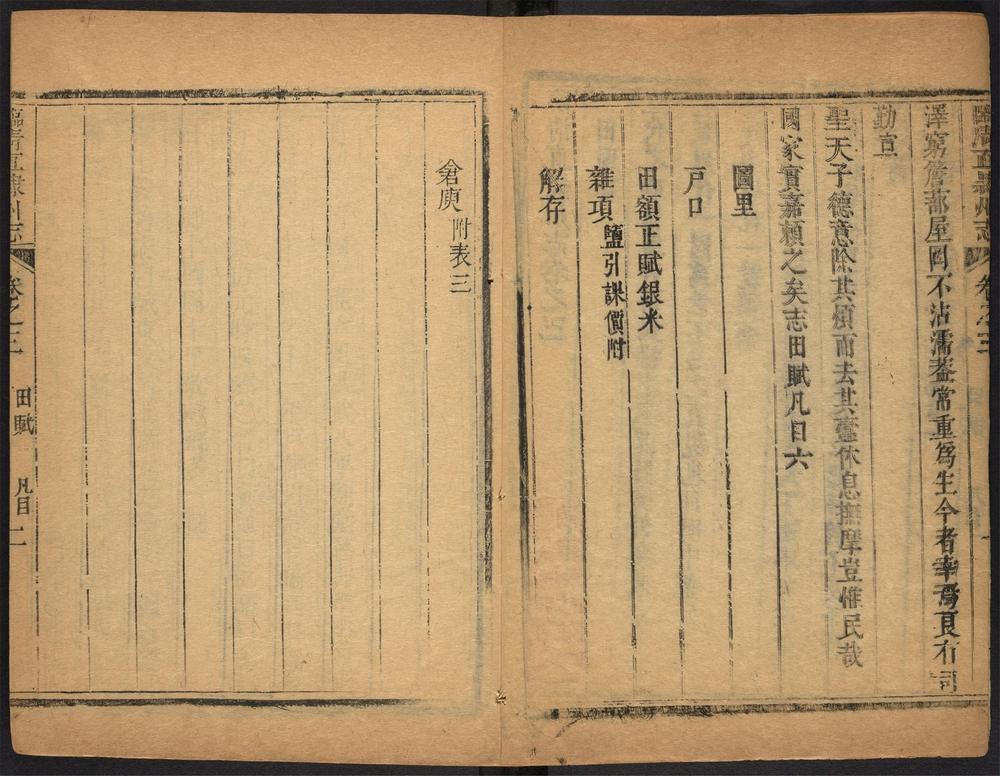 臨清直隸州志 卷之三
澤窮簷蔀屋罔不沾濡葢常重爲生今者幸爲良有司
勤宣
聖天子德意除其煩而去其蠧休息撫摩豈惟民哉
國家實嘉賴之矣志田賦凡目六
圖里
戶口
田額正賦銀米
雜項鹽引課價附
解存
倉庾附表三
臨清直隸州志 卷之三 田賦 凡目 二